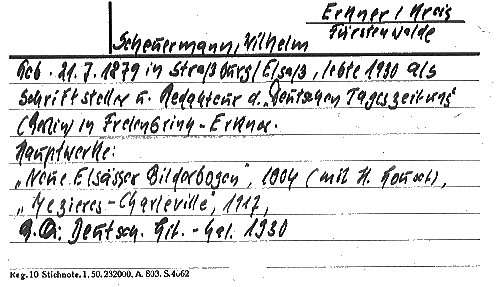 Erkner / Kreis
Fürstenwalde
Scheuermann, Wilhelm
Geb. 21.7.1879 in Straßburg/Elsaß, lebte 1930 als
Schriftsteller u. Redakteur d. „Deutschen Tageszeitung"
(Berlin) in Freienbrink-Erkner.
Hauptwerke:
„Neue Elsässer Bilderbogen", 1904 (mit H.
„Mezieres-Charleville", 1917,
Deutsch. Lit.-Kal. 1930
Reg. 10 Stichnote. 1. 50. 232000. A. 803. S. 4662